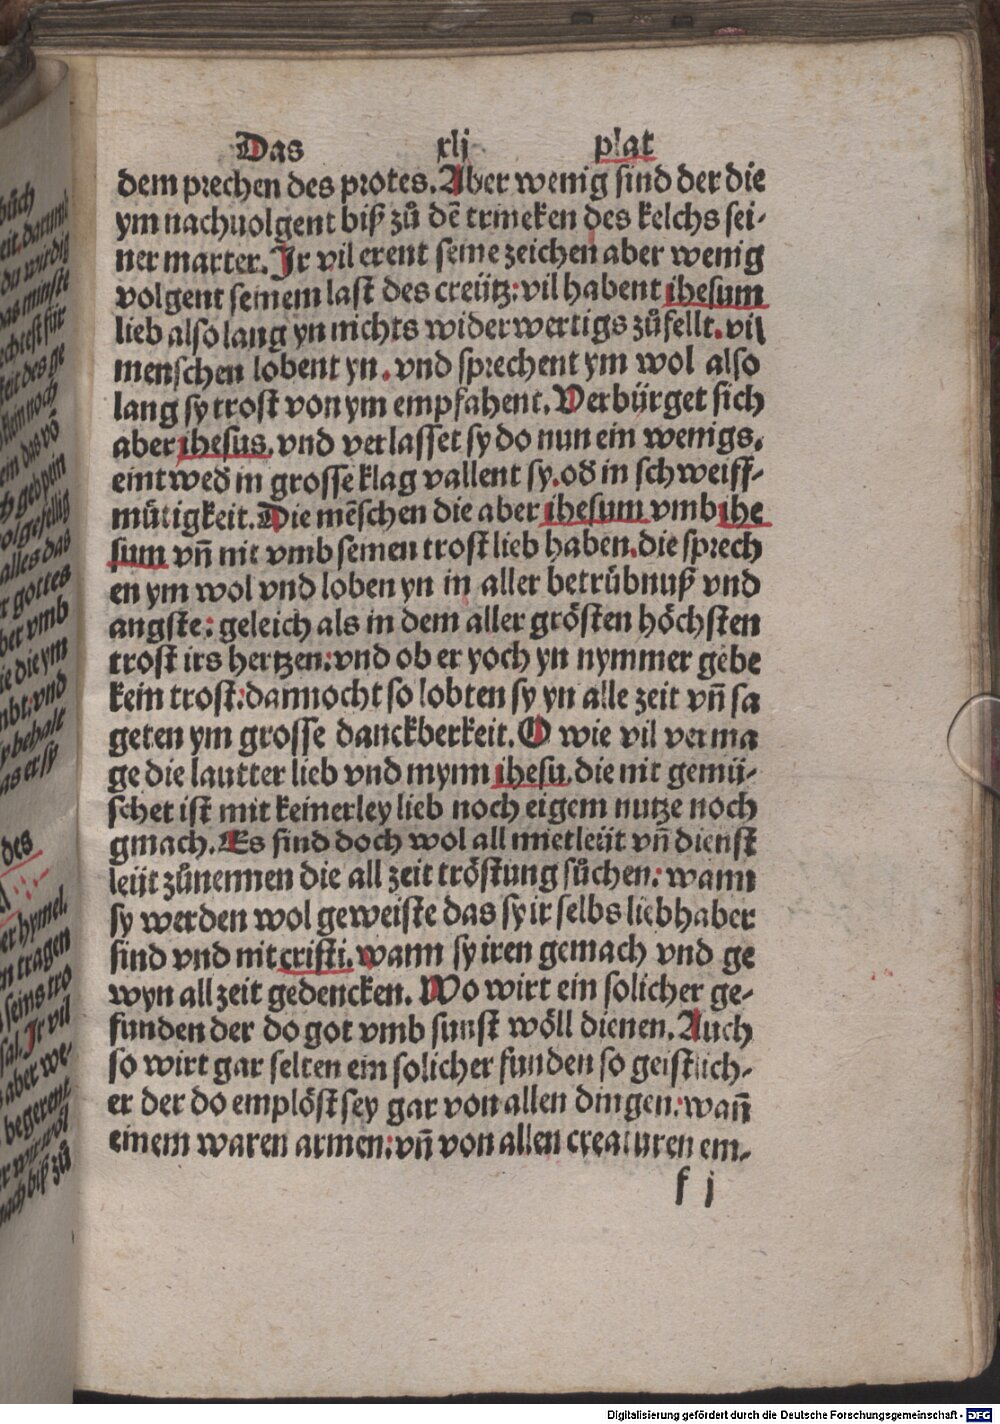 Das xlj plat
dem prechen des protes. Aber wenig sind der die
ym nachuolgent biß zů dē trincken des kelchs sei-
ner marter. Jr vil erent seine zeichen aber wenig
volgent seinem last des creütz: vil habent ihesum
lieb also lang yn nichts widerwertigs zůfellt. vil
menschen lobent yn. vnd sprechent ym wol also
lang sy trost von ym empfahent. Verbürget sich
aber ihesus. vnd verlasset sy do nun ein wenigs.
eintwed in grosse klag vallent sy. od in schweiff-
mütigkeit. Die mēschen die aber ihesum vmb ihe
sum vn̄ nit vmb seinen trost lieb haben. die sprech
en ym wol vnd loben yn in aller betrübnuß vnd
angste: geleich als in dem aller grösten höchsten
trost irs hertzen: vnd ob er yoch yn nymmer gebe
kein trost: dannocht so lobten sy yn alle zeit vn̄ sa
geten ym grosse danckberkeit. O wie vil verma
ge die lautter lieb vnd mynn ihesu. die nit gemü-
schet ist mit keinerley lieb noch eigem nutze noch
gmach. Es sind doch wol all mietleüt vn̄ dienst
leüt zůnennen die all zeit tröstung sůchen: wann
sy werden wol geweiste das sy ir selbs liebhaber
sind vnd nit cristi. wann sy iren gemach vnd ge
wyn all zeit gedencken. Wo wirt ein solicher ge-
funden der do got vmb sunst wöll dienen. Auch
so wirt gar selten ein solicher funden so geistlich-
er der do emplöst sey gar von allen dingen: wan̄
einem waren armen: vn̄ von allen creaturen em-
f j
bůch
eit. darumb
du wirdig
das minste
recht est für
keit des ge
kan noch
ein das vō
geb pein
wolgefellig
alles das
r gottes
ber vmb
die die ym
vnd
sy behalt
as er sy
des
er hymel.
en tragen
seins tro
sal. Jr vil
aber we-
begerent
er wir wöl
nach biß zů
Digitalisierung gefördert durch die Deutsche Forschungsgemeinschaft - DFG